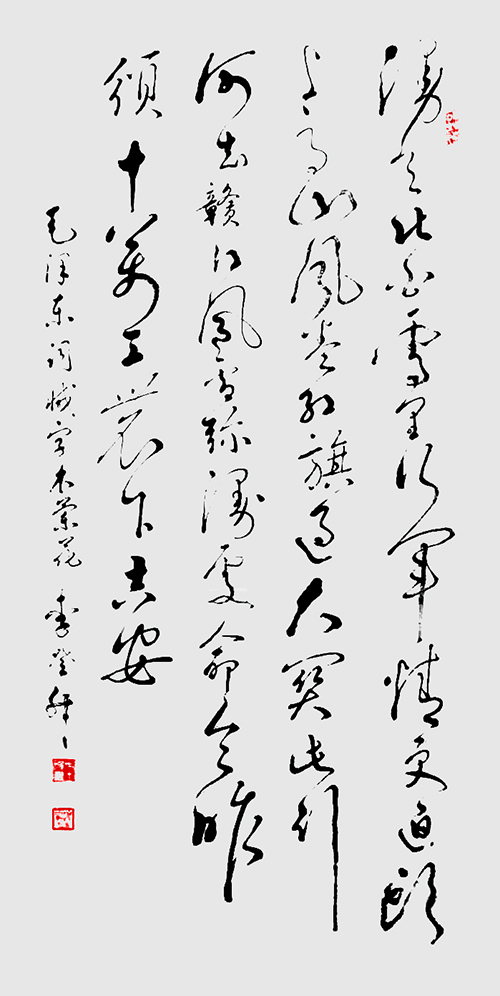 漫天皆白雪里行军情更迫头
上高山风卷红旗过大关此行
何去赣江风雪弥漫处命令昨
颁十万工农下吉安
毛泽东词减字木兰花 李登